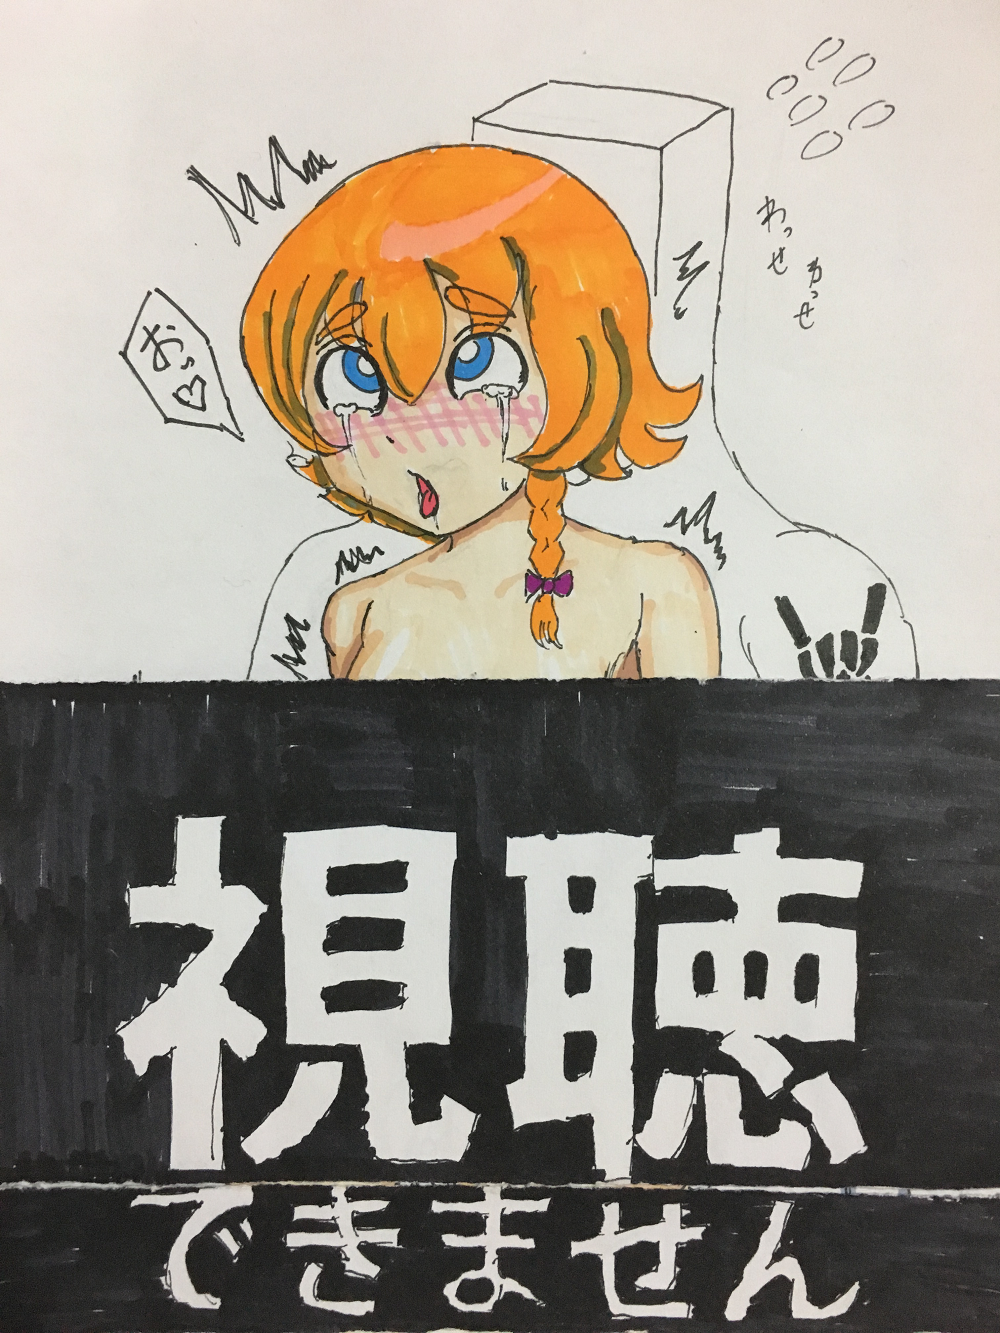 おっ♡
わっせ
わっせ
視聴
できません